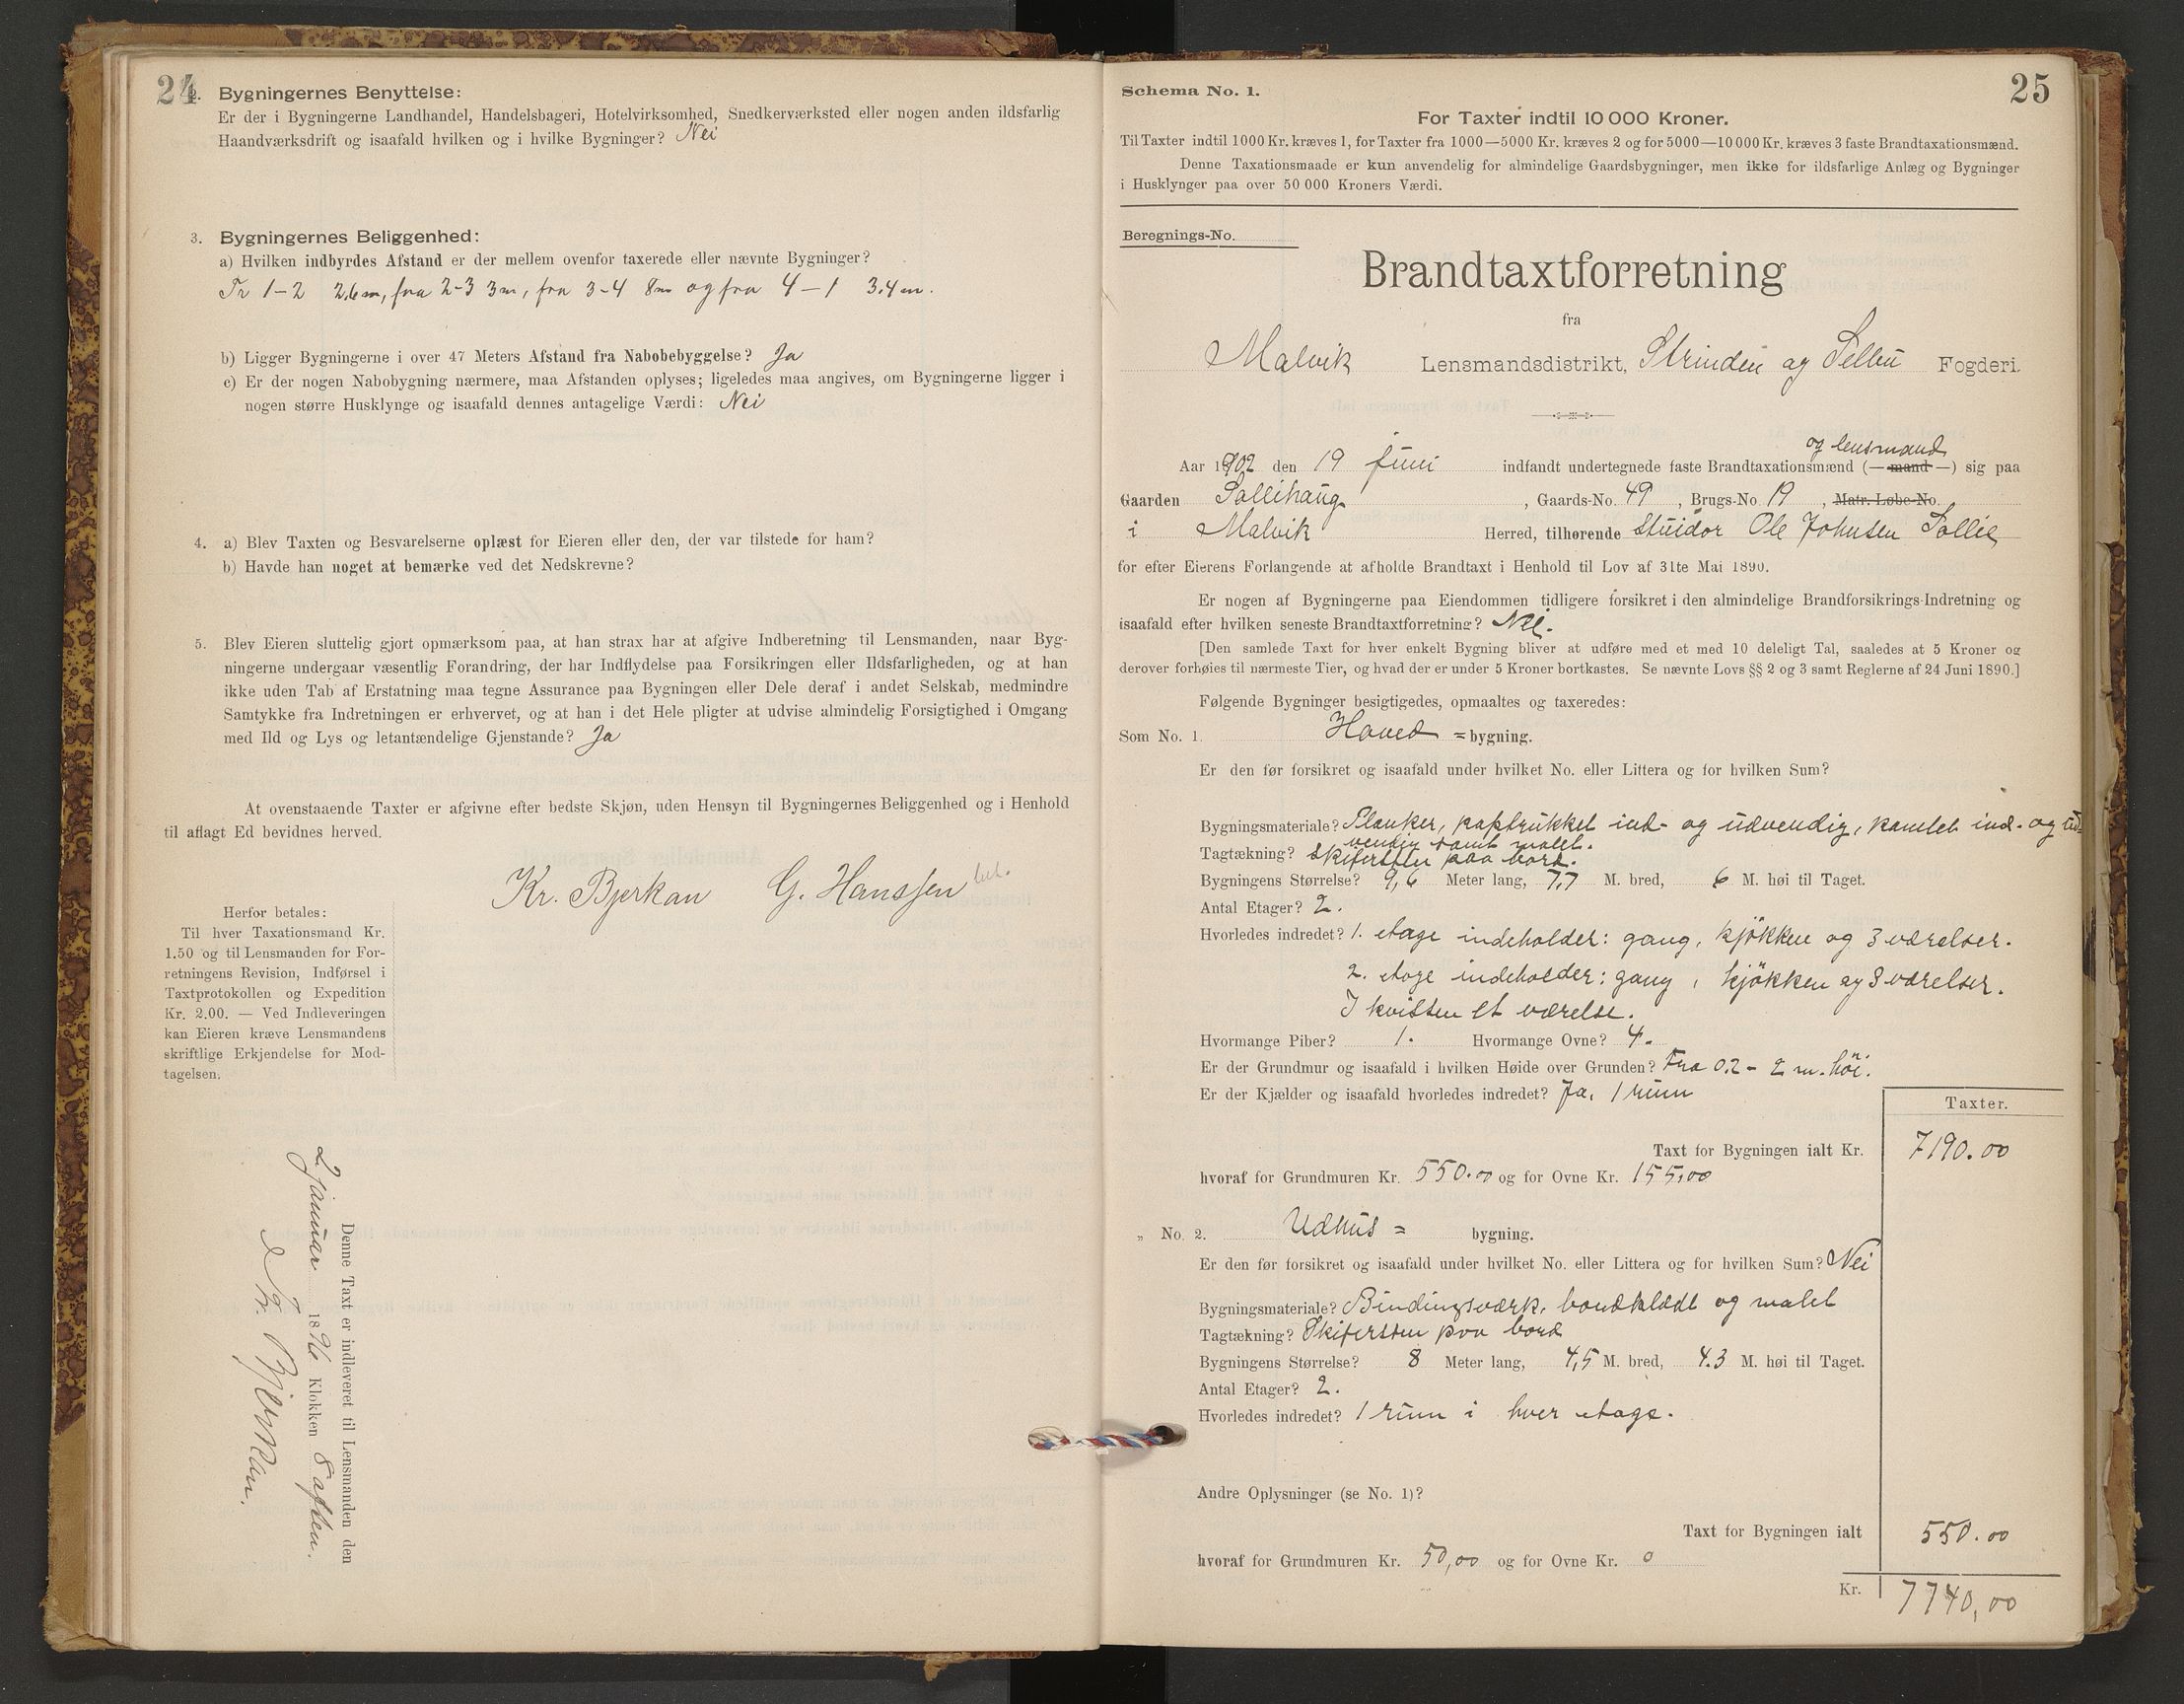 24
2. Bygningernes Benyttelse:
Er der i Bygningerne Landhandel, Handelsbageri, Hotelvirksomhed, Snedkerværksted eller nogen anden ildsfarlig
Haandværksdrift og isaafald hvilken og i hvilke Bygninger? Nei
3. Bygningernes Beliggenhed:
a) Hvilken indbyrdes Afstand er der mellem ovenfor taxerede eller nævnte Bygninger?
Fr 1-2 2,6 m, fra 2-3 3m, fra 3-4 8m og fra 4-1 3.4 m.
b) Ligger Bygningerne i over 47 Meters Afstand fra Nabobebyggelse? Ja
c) Er der nogen Nabobygning nærmere, maa Afstanden oplyses; ligeledes maa angives, om Bygningerne ligger i
nogen større Husklynge og isaafald dennes antagelige Værdi: Nei
4. a) Blev Taxten og Besvarelserne oplæst for Eieren eller den, der var tilstede for ham?
b) Havde han noget at bemærke ved det Nedskrevne?
5. Blev Eieren sluttelig gjort opmærksom paa, at han strax har at afgive Indberetning til Lensmanden, naar Byg-
ningerne undergaar væsentlig Forandring, der har Indflydelse paa Forsikringen eller Ildsfarligheden, og at han
ikke uden Tab af Erstatning maa tegne Assurance paa Bygningen eller Dele deraf i andet Selskab, medmindre
Samtykke fra Indretningen er erhvervet, og at han i det Hele pligter at udvise almindelig Forsigtighed i Omgang
med Ild og Lys og letantændelige Gjenstande? Ja
At ovenstaaende Taxter er afgivne efter bedste Skjøn, uden Hensyn til Bygningernes Beliggenhed og i Henhold
til aflagt Ed bevidnes herved.
Kr. Bjerkan G. Hanssen
Herfor betales:
Til hver Taxationsmand Kr.
1.50 og til Lensmanden for For-
retningens Revision, Indførsel i
Taxtprotokollen og Expedition
Kr. 2.00. — Ved Indleveringen
kan Eieren kræve Lensmandens
skriftlige Erkjendelse for Mod-
tagelsen.
Denne Taxt er indleveret til Lensmanden den
2 Januar 1896 Klokken 8 aften.
Kr. Bjerkan.
25
Schema No. 1.
For Taxter indtil 10 000 Kroner.
Til Taxter indtil 1000 Kr. kræves 1, for Taxter fra 1000—5000 Kr. kræves 2 og for 5000—10 000 Kr. kræves 3 faste Brandtaxationsmænd.
Denne Taxationsmaade er kun anvendelig for almindelige Gaardsbygninger, men ikke for ildsfarlige Anlæg og Bygninger
i Husklynger paa over 50 000 Kroners Værdi.
Beregnings-No.
Brandtaxtforretning
fra
Malvik Lensmandsdistrikt, Strinden og Selbu Fogderi.
og lensmand
Aar 1902 den 19 Juni indfandt undertegnede faste Brandtaxationsmænd (— mand —) sig paa
Gaarden Sollihaug, Gaards-No. 49, Brugs-No 19, Matr. Løbe-No.
i Malvik Herred, tilhørende Stuidor Ole Johnsen Sollie
for efter Eierens Forlangende at afholde Brandtaxt i Henhold til Lov af 31te Mai 1890.
Er nogen af Bygningerne paa Eiendommen tidligere forsikret i den almindelige Brandforsikrings-Indretning og
isaafald efter hvilken seneste Brandtaxtforretning? Nei.
[Den samlede Taxt for hver enkelt Bygning bliver at udføre med et med 10 deleligt Tal, saaledes at 5 Kroner og
derover forhøies til nærmeste Tier, og hvad der er under 5 Kroner bortkastes. Se nævnte Lovs §§ 2 og 3 samt Reglerne af 24 Juni 1890.]
Følgende Bygninger besigtigedes, opmaaltes og taxeredes:
Som No. 1. Hoved = bygning.
Er den før forsikret og isaafald under hvilket No. eller Littera og for hvilken Sum?
Bygningsmateriale? Planker, paptrukket ind- og udvendig, panelet ind- og ud-
vendig samt malet.
Tagtækning? Skifersten paa bord.
Bygningens Størrelse? 9,6 Meter lang, 7,7 M. bred, 6 M. høi til Taget.
Antal Etager? 2.
Hvorledes indredet? 1. etage indeholder: gang, kjökken og 3 værelser.
2. etage indeholder: gang, kjökken og 3 værelser.
I kvisten et værelse.
Hvormange Piber? 1. Hvormange Ovne? 4.
Er der Grundmur og isaafald i hvilken Høide over Grunden? Fra 0.2 - 2 m. höi.
Er der Kjælder og isaafald hvorledes indredet? Ja. 1 rum
Taxter.
Taxt for Bygningen ialt Kr. 7190.00
hvoraf for Grundmuren Kr. 550.00 og for Ovne Kr. 155,00
„ No. 2. Udhus = bygning.
Er den før forsikret og isaafald under hvilket No. eller Littera og for hvilken Sum? Nei
Bygningsmateriale? Bindingsværk, bordklædt og malet
Tagtækning? Skifersten paa bord
Bygningens Størrelse? 8 Meter lang, 4,5 M. bred, 4.3 M. høi til Taget.
Antal Etager? 2.
Hvorledes indredet? 1 rum i hver etage.
Andre Oplysninger (se No. 1)?
Taxt for Bygningen ialt 550.00
hvoraf for Grundmuren Kr. 50,00 og for Ovne Kr. 0
Kr. 7740,00